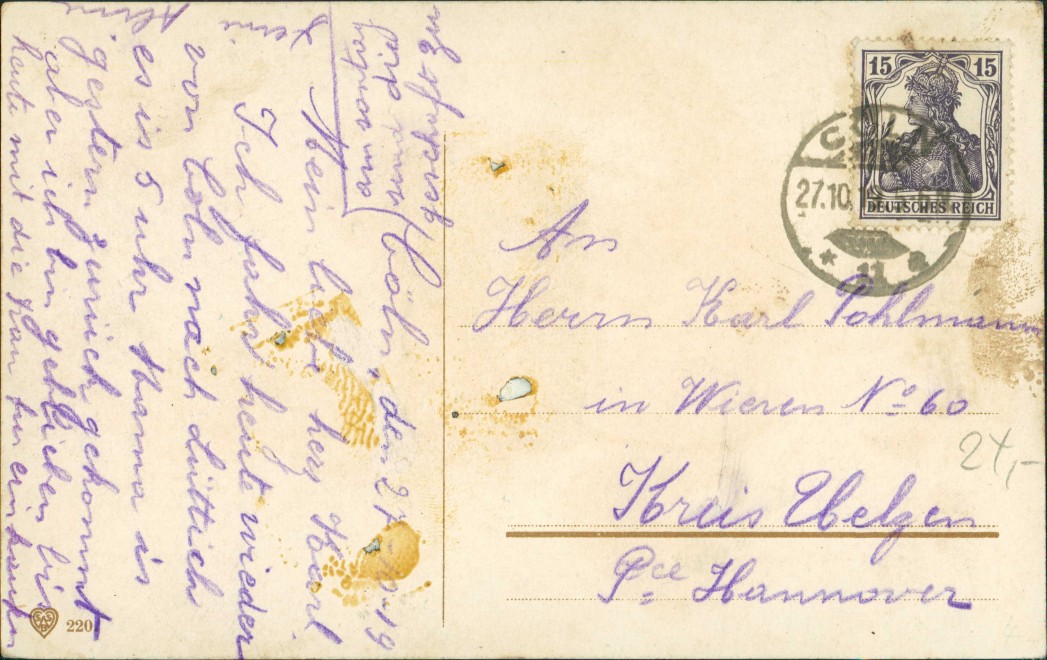 Cöln, den 27.10.19
Mein liebe herz Kaarl
Ich fahr heute wieder
von Cöln nach Lüttich
es is 5 uhr Mama is
gestern zurück gekommt
aber ich bin geblieben bis
heute mit die frau zum einkaufen
15 15
DEUTSCHES REICH
27.10.
An
Herrn Karl Pohlmann
in Wieren No 60
Kreis Uelzen
Pce Hannover
24,-
220